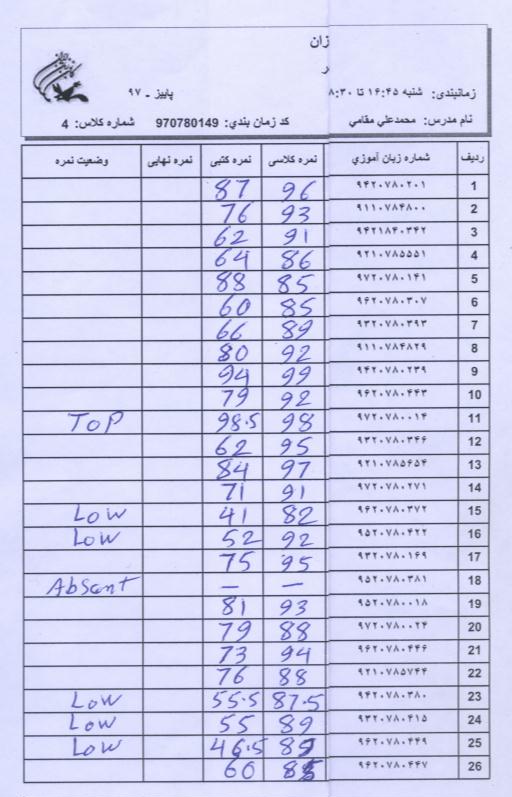 زان
ر
پاییز ـ ۹۷
زمانبندی: شنبه ۱۶:۴۵ تا ۸:۳۰
نام مدرس: محمدعلي مقامي کد زمان بندي: 970780149 شماره کلاس: 4
ردیف شماره زبان آموزي نمره کلاسی نمره کتبی نمره نهایی وضعیت نمره
1 ۹۴۲۰۷۸۰۲۰۱ 96 87
2 ۹۱۱۰۷۸۴۸۰۰ 93 76
3 ۹۴۲۱۸۴۰۳۴۲ 91 62
4 ۹۲۱۰۷۸۵۵۵۱ 86 64
5 ۹۷۲۰۷۸۰۱۴۱ 85 88
6 ۹۶۲۰۷۸۰۳۰۷ 85 60
7 ۹۳۲۰۷۸۰۳۹۳ 89 66
8 ۹۱۱۰۷۸۴۸۲۹ 92 80
9 ۹۴۲۰۷۸۰۲۳۹ 99 94
10 ۹۶۲۰۷۸۰۴۴۳ 92 79
11 ۹۷۲۰۷۸۰۰۱۴ 98 98.5 TOP
12 ۹۳۲۰۷۸۰۳۴۶ 95 62
13 ۹۲۱۰۷۸۵۶۵۴ 97 84
14 ۹۷۲۰۷۸۰۲۷۱ 91 71
15 ۹۶۲۰۷۸۰۳۷۲ 82 41 Low
16 ۹۵۲۰۷۸۰۴۲۲ 92 52 Low
17 ۹۳۲۰۷۸۰۱۶۹ 95 75
18 ۹۵۲۰۷۸۰۳۸۱ — — Absent
19 ۹۵۲۰۷۸۰۰۱۸ 93 81
20 ۹۷۲۰۷۸۰۰۲۴ 88 79
21 ۹۶۲۰۷۸۰۴۴۶ 94 73
22 ۹۲۱۰۷۸۵۷۴۴ 88 76
23 ۹۴۲۰۷۸۰۳۸۰ 87.5 55.5 Low
24 ۹۳۲۰۷۸۰۴۱۵ 89 55 Low
25 ۹۶۲۰۷۸۰۴۴۹ 46.5 Low
26 ۹۶۲۰۷۸۰۴۴۷ 60